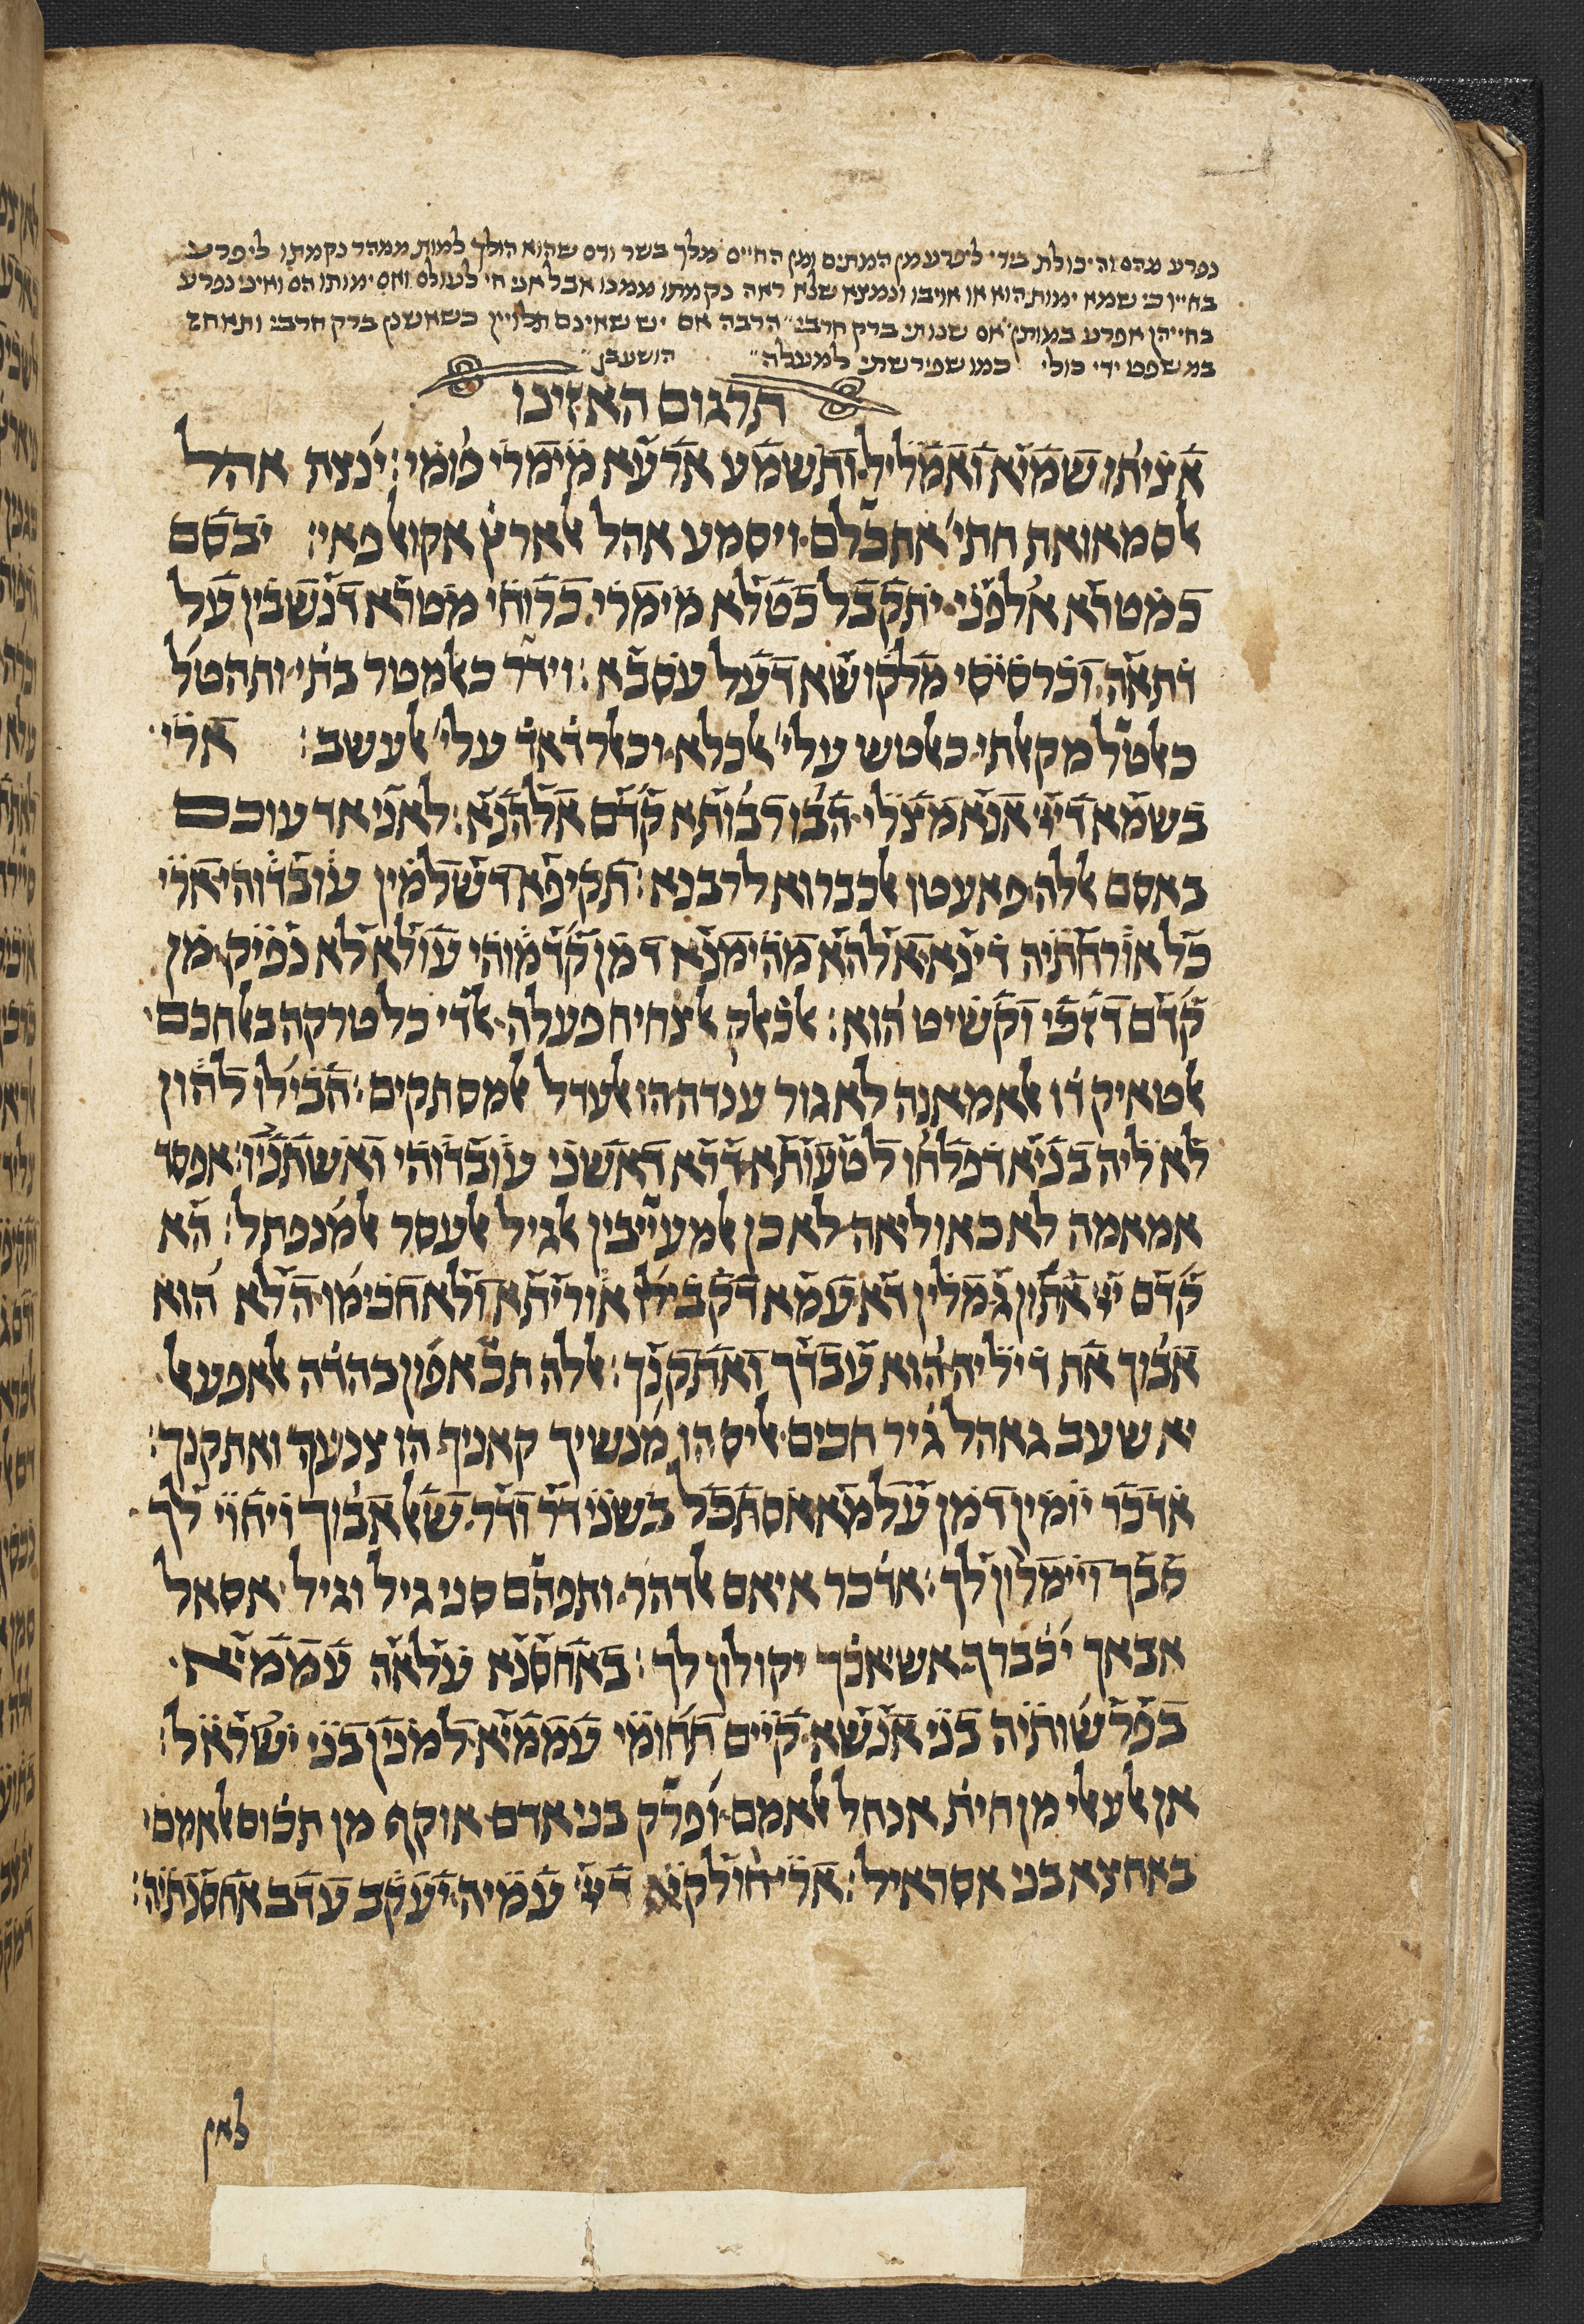 נפרע מהם והיכולת בידי ליפרע מן המתים ומן החיים מלך בשר ודם שהוא הולך למות ממהר נקמתו ליפרע
בחייו כי שמא ימות הוא או אויבו ונמצא שלא ראה נקמתו ממנו אבל אני חי לעולם ואם ימותו הם ואיני נפרע
בחייהן אפרע במותן אם שנותי ברק חרבי הרבה אם יש שאינם תלויין כשאשנן ברק חרבי ותאחז
במשפט ידי כולי כמו שפירשתי למעלה הושענן
תרגום האזינו
אציתו שמיא ואמליל ותשמע ארעא מימרי פומי׃ ינצת אהל
אלסמאואת חתי אתכלם ויסמע אהל אלארץ אקואל פאי׃ יבסם
כמטרא אלפני יתקבל כטלא מימרי כרוחי מטרא דנשבין על
דתאה וכרסיסי מלקושא דעל עסבא׃ וידר כאלמטר בתי ותהטל
כאלטל מקאלתי כאלטש עלי אלכלא וכאלרדאד עלי אלעשב׃ ארי
בשמא דיי אנא מצלי הבו רבותא קדם אלהנא׃ לאני אדעוכם
באסם אללה פאעטו אלכברוא לרבנא׃ תקיפא דשלמין עובדוהי ארי
כל אורחתיה דינא אלהא מהימנא דמן קדמוהי עולא לא נפיק מן
קדם דזכי וקשיט הוא׃ אלכאלק אלצחיח פעלה אלדי כל טרקה באלחכם
אלטאיק דו אלאמאנה לא גור ענדה הו אלעדל אלמסתקים׃ חבילו להון
לא ליה בניא דפלחו לטעותא דרא דאשני עובדוהי ואשתניו׃ אפסד
אמאמה לא כאוליאה לאכן אלמעייבין אלגיל אלעסר אלמנפתל׃ הא
קדם יי אתון גמלין דא עמא דקבילו אוריתא ולא חכימו הלא הוא
אבוך את דיליה הוא עבדך ואתקנך׃ אללה תכאפון בהדה אלאפעאל
יא שעב גאהל גיר חכים אליס הו מנשיך קאניך הו צנעך ואתקנך׃
אדכר יומין דמן עלמא אסתכל בשני דר ודר שאל אבוך ויחוי לך
סבך ויימרון לך׃ אדכר איאם אלדהר ותפהם סני גיל וגיל אסאל
אבאך יכברך אשיאכך יקולון לך׃ באחסנא עלאה עממיא
בפרשותיה בני אנשא קיים תחומי עממיא למנין בני ישראל׃
אן אלעאלי מן חית אנחל אלאמם ופרק בני אדם אוקף מן תכום אלאמם
באחצא בני אסראיל׃ ארי חולקא דיי עמיה יעקב עדב אחסנתיה׃
לאן